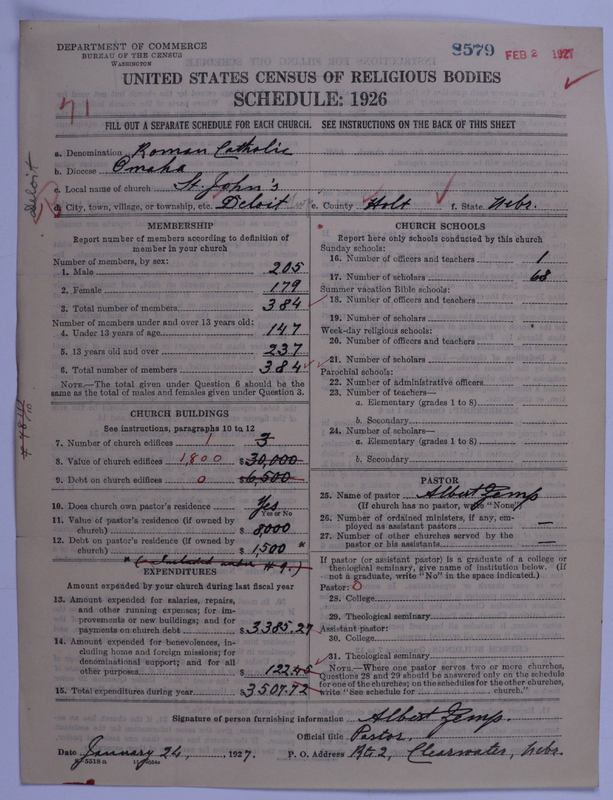 DEPARTMENT OF COMMERCE
BUREAU OF THE CENSUS
WASHINGTON
8579 FEB 2 1927
UNITED STATES CENSUS OF RELIGIOUS BODIES
SCHEDULE: 1926
71
FILL OUT A SEPARATE SCHEDULE FOR EACH CHURCH. SEE INSTRUCTIONS ON THE BACK OF THIS SHEET
a. Denomination Roman Catholic
b. Diocese Omaha
c. Local name of church St. John's
d. City, town, village, or township, etc. Deloit e. County Holt f. State Nebr.
Deloit
MEMBERSHIP
Report number of members according to definition of
member in your church
Number of members, by sex:
1. Male 205
2. Female 179
3. Total number of members 384
Number of members under and over 13 years old:
4. Under 13 years of age 147
5. 13 years old and over 237
6. Total number of members 384
NOTE.—The total given under Question 6 should be the
same as the total of males and females given under Question 3.
CHURCH BUILDINGS
See instructions, paragraphs 10 to 12
7. Number of church edifices 1 3
8. Value of church edifices 1,800 $30,000
9. Debt on church edifices 0 $6,500
10. Does church own pastor's residence Yes
Yes or No
11. Value of pastor's residence (if owned by
church) $8,000
12. Debt on pastor's residence (if owned by
church) $1,500 *
* (included under #9.)
EXPENDITURES
Amount expended by your church during last fiscal year
13. Amount expended for salaries, repairs,
and other running expenses; for im-
provements or new buildings; and for
payments on church debt $3385.27
14. Amount expended for benevolences, in-
cluding home and foreign missions; for
denominational support; and for all
other purposes $122.45
15. Total expenditures during year $3507.72
CHURCH SCHOOLS
Report here only schools conducted by this church
Sunday schools:
16. Number of officers and teachers 1
17. Number of scholars 68
Summer vacation Bible schools:
18. Number of officers and teachers
19. Number of scholars
Week-day religious schools:
20. Number of officers and teachers
21. Number of scholars
Parochial schools:
22. Number of administrative officers
23. Number of teachers—
a. Elementary (grades 1 to 8)
b. Secondary
24. Number of scholars—
a. Elementary (grades 1 to 8)
b. Secondary
PASTOR
25. Name of pastor Albert Zemp
(If church has no pastor, write "None")
26. Number of ordained ministers, if any, em-
ployed as assistant pastors —
27. Number of other churches served by the
pastor or his assistants —
If pastor (or assistant pastor) is a graduate of a college or
theological seminary, give name of institution below. (If
not a graduate, write "No" in the space indicated.)
Pastor: 0
28. College
29. Theological seminary
Assistant pastor:
30. College
31. Theological seminary
NOTE.—Where one pastor serves two or more churches,
Questions 28 and 29 should be answered only on the schedule
for one of the churches; on the schedules for the other churches,
write "See schedule for church."
Signature of person furnishing information Albert Zemp.
Official title Pastor.
Date January 24, 1927. P. O. Address Rt 2, Clearwater, Nebr.